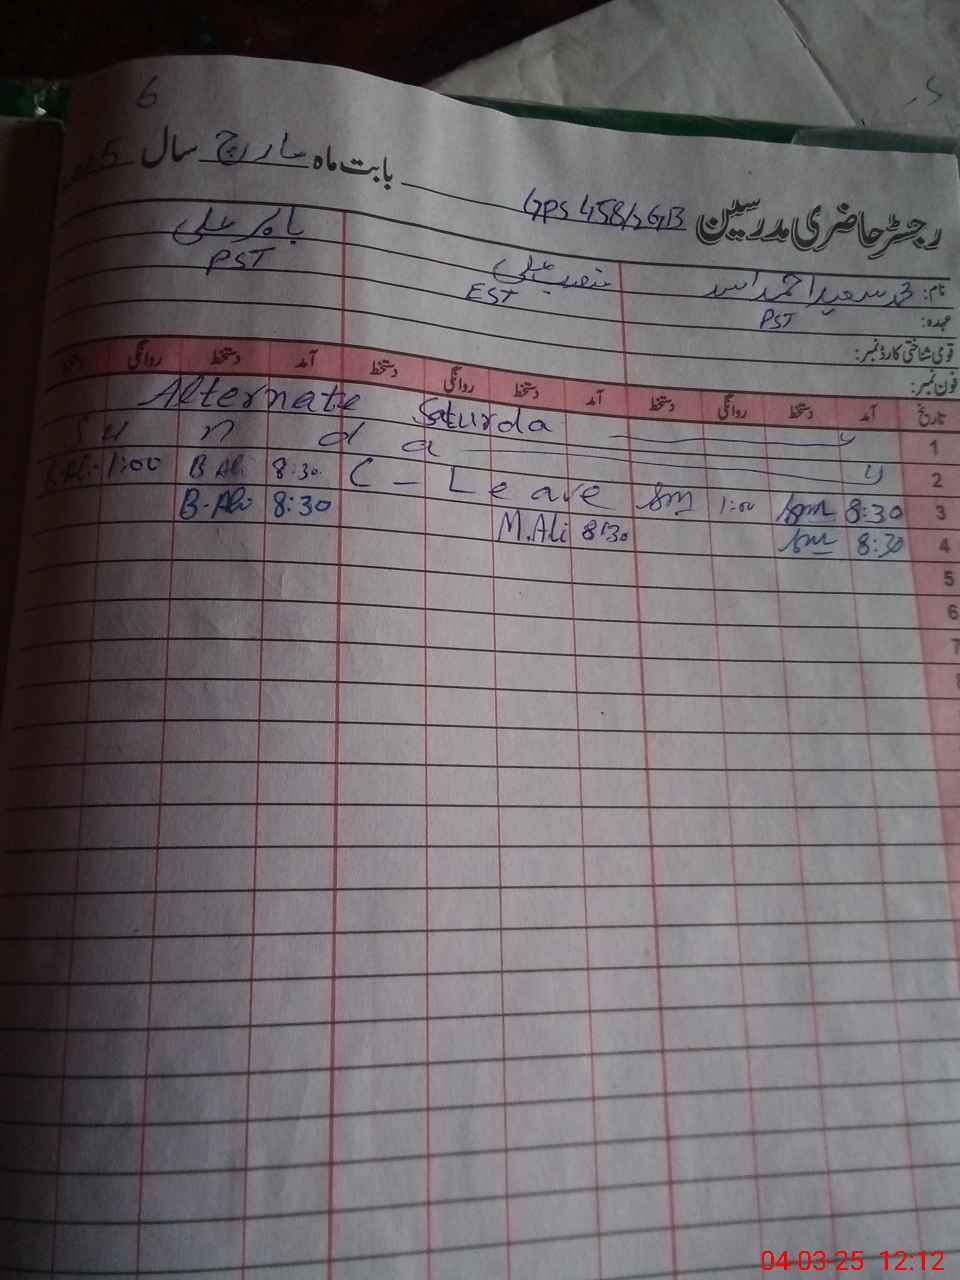 6
رجسٹر حاضری مدرسین GPS 458/GB بابت ماہ مارچ سال
نام: محمد سعید احمد علی بابر علی
عہدہ: PST EST PST
قومی شناختی کارڈ نمبر:
فون نمبر:
تاریخ آمد دستخط روانگی دستخط آمد دستخط روانگی دستخط آمد دستخط روانگی
1 Alternate Saturday
2 Sunday
3 8:30 Sm 1:00 Sm C-Leave 8:30 B Ali 1:00 B.Ali
4 8:30 Sm 8:30 M.Ali 8:30 B.Ali
5
6
7
8
04-03-25 12:12